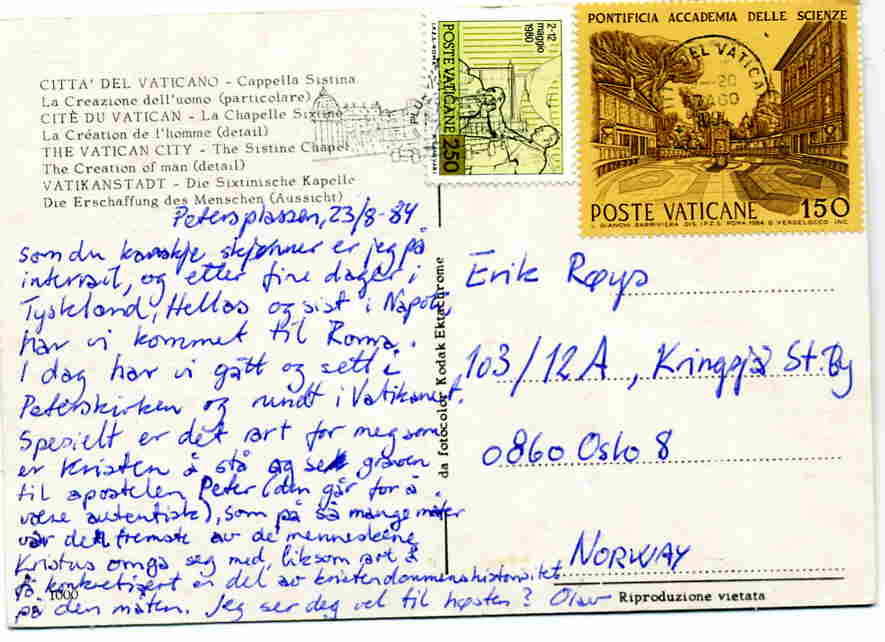 CITTA' DEL VATICANO - Cappella Sistina
La Creazione dell'uomo (particolare)
CITÈ DU VATICAN - La Chapelle Sixtine
La Création de l'homme (detail)
THE VATICAN CITY - The Sistine Chapel
The Creation of man (detail)
VATIKANSTADT - Die Sixtinische Kapelle
Die Erschaffung des Menschen (Aussicht)
2-12 maggio 1980
POSTE VATICANE 250
PONTIFICIA ACCADEMIA DELLE SCIENZE
POSTE VATICANE 150
Petersplassen, 23/8-84
Som du kanskje skjønner er jeg på
interrail, og etter fine dager i
Tyskland, Hellas og sist i Napoli,
har vi kommet til Roma.
I dag har vi gått og sett i
Peterskirken og rundt i Vatikanet.
Spesielt er det rart for meg som
er kristen å stå og se graven
til apostelen Peter (den går for å
være autentisk), som på så mange måter
var den fremste av de menneskene
Kristus omga seg med, liksom rart å
få konkretisert en del av kristendommens historisitet
på den måten. Jeg ser deg vel til høsten? Olav
1000
da fotocolor Kodak Ektachrome
Erik Røys
103/12A, Kringsjå St.By
0860 Oslo 8
NORWAY
Riproduzione vietata